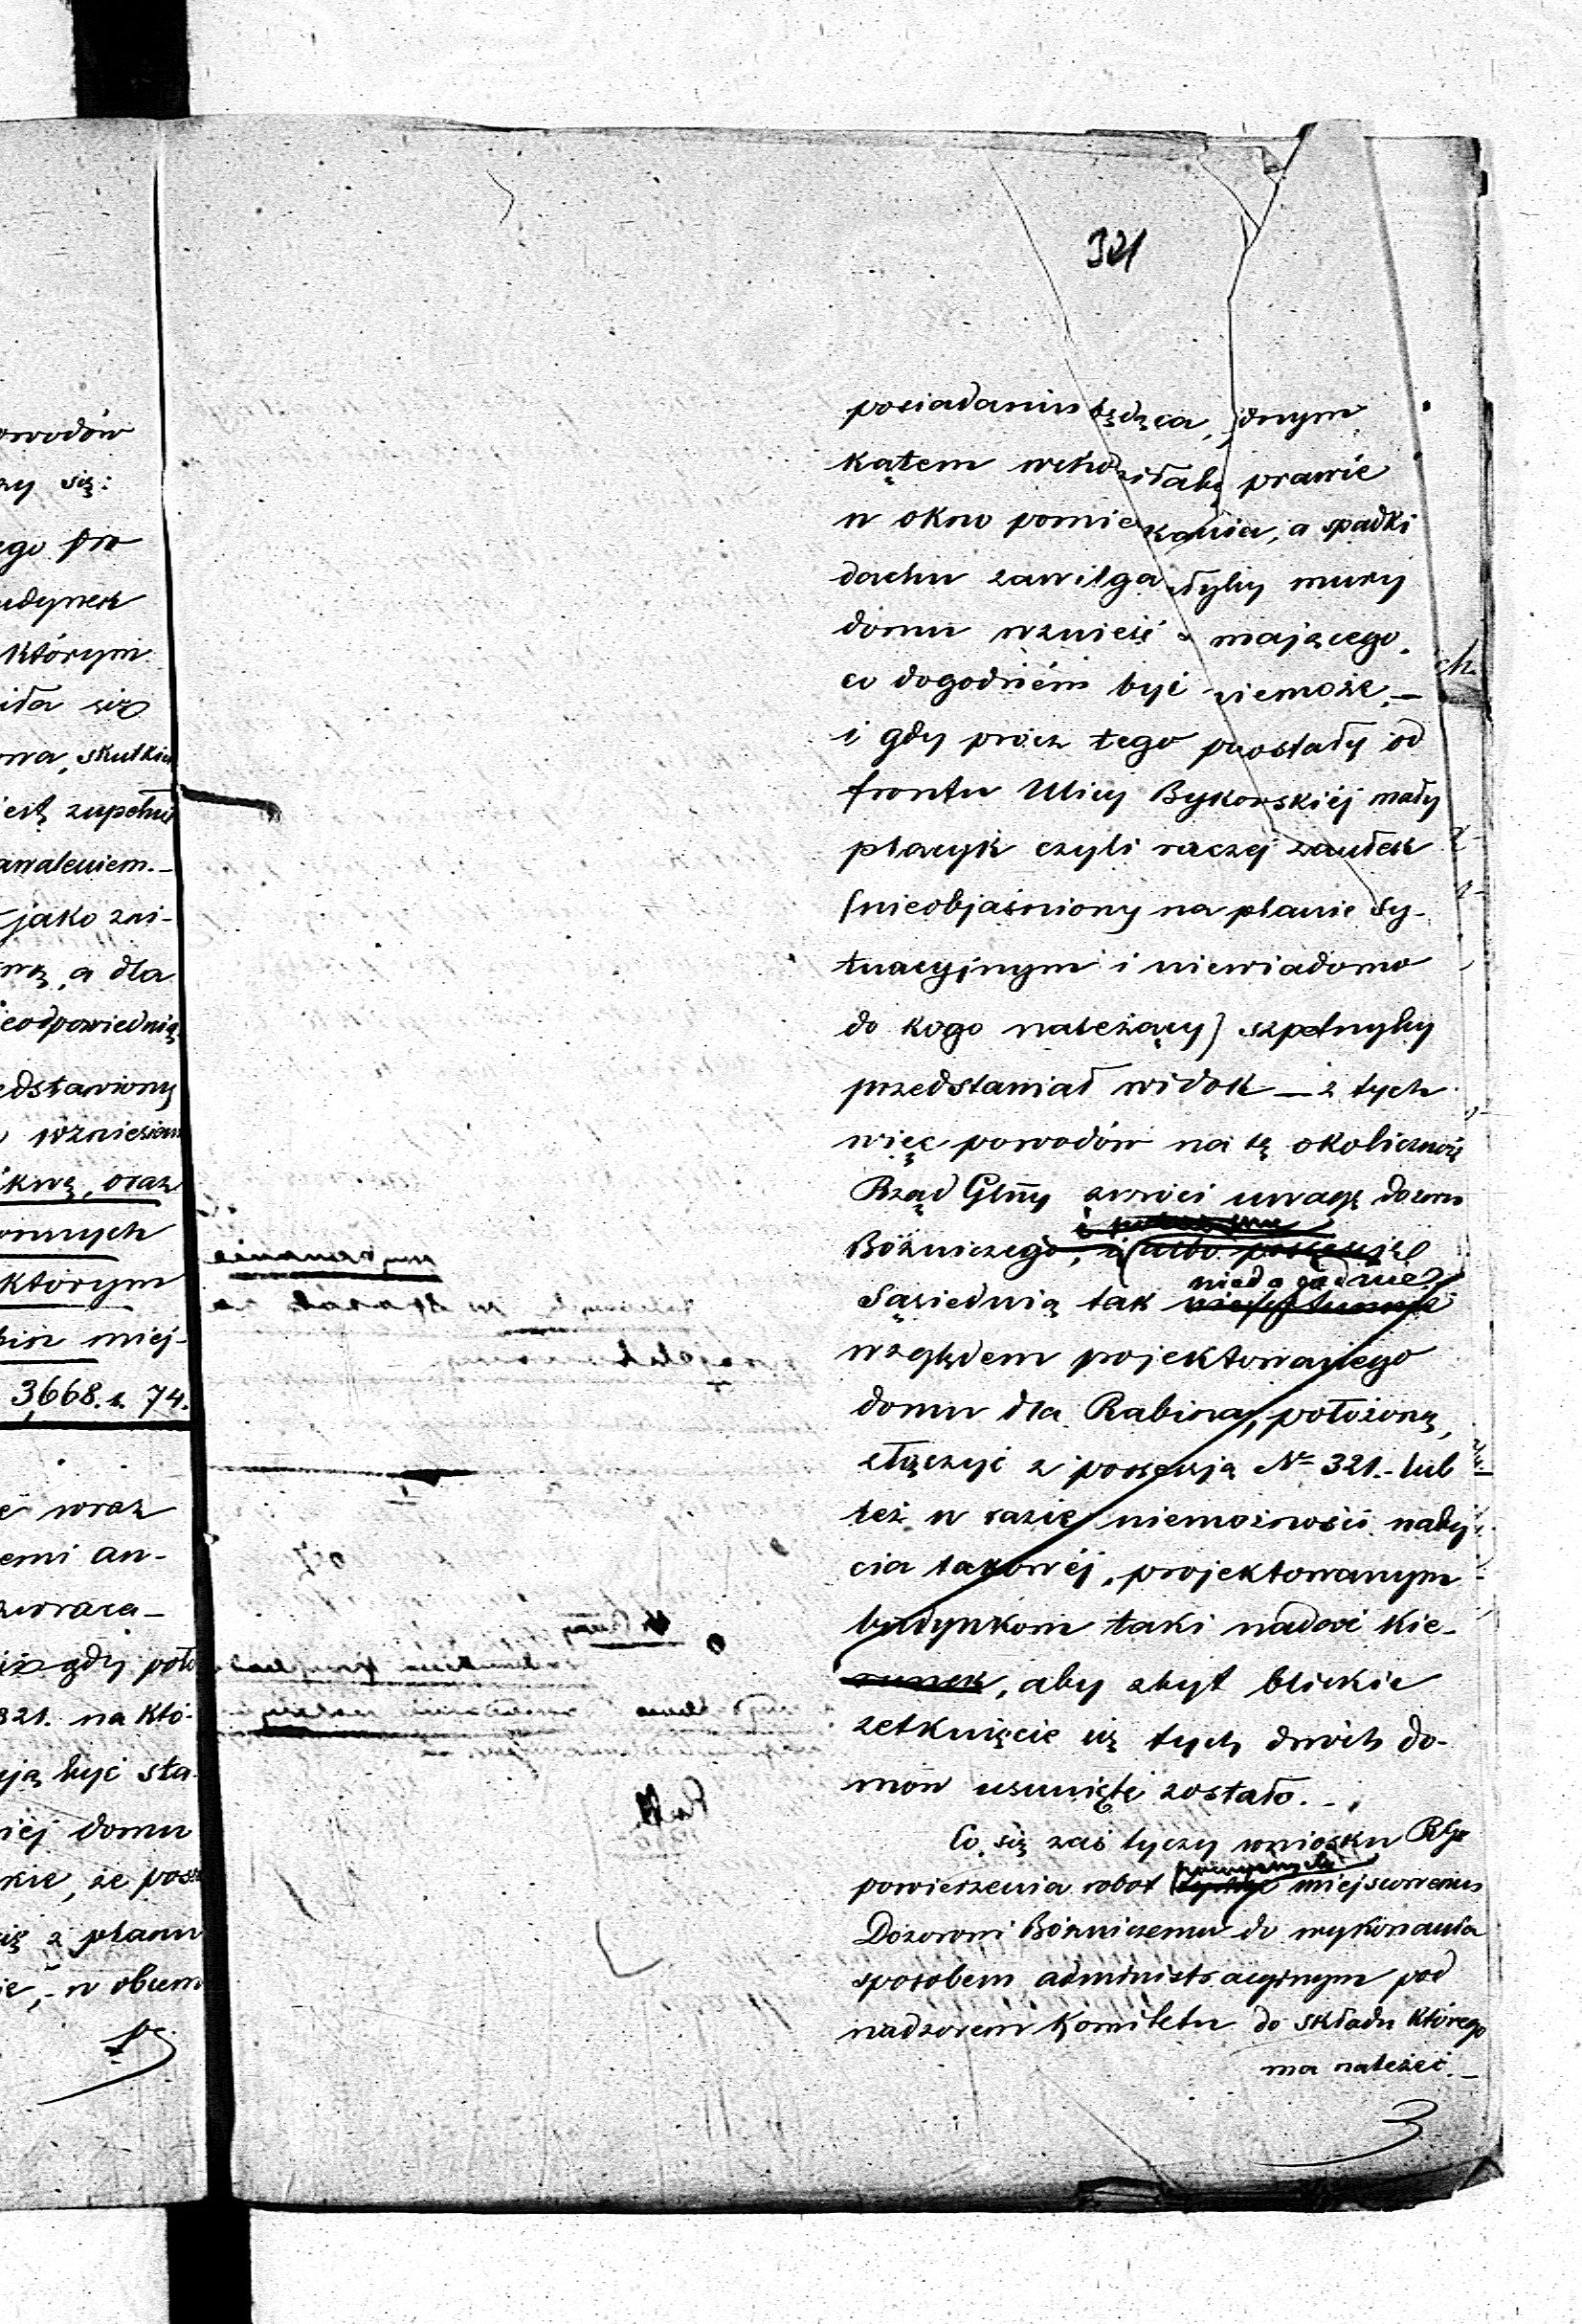 owodów
zy się:
ego pro
udynek
którym
iła się
owa, skutkiem
jest zupełnie
awaleniem.-
jako zni-
a dla
eodpowiednią
edstawiony
wzniesien
oraz
onnych
którym
miej-
3,668. k. 74.
wraz
emi an-
zwraca-
iż gdy poło
321. na któ-
ją być sta-
iej domu
kie, że poss
się z planu
ie,- w obecn
321
posiadaniu będąca, jednym
kątem wchodziłaby prawie
w okno pomieszkania, a spadki
dachu zawilgadzałyby mury
domu wznieść się mającego,
co dogodném być niemoże.—
i gdy prócz tego pozostały od
frontu Ulicy Bykowskiéj mały
placyk czyli raczej zaułek
(nieobjaśniony na planie Sy-
tuacyjnym i niewiadomo
do kogo należący) szpetnyby
przedstawiał widok — z tych
więc powodów na tę okoliczność
Rząd Glny zwróci uwagę dozoru
Bóżniczego, i albo possessję
niedogodnie
Sąsiednią tak
względem projektowanego
domu dla Rabina, położoną,
złączyć z possessją No 321.- lub
też w razie niemożności naby-
cia takowéj, projektowanym
budynkom taki nadać kie-
runek, aby zbyt blizkie
zetknięcie się tych dwóch do-
mów usunięte zostało.—
Co się zaś tyczy wniosku RGo
powierzenia robot miejscowemu
Dozorowi Bóżniczemu do wykonania
sposobem administracyjnym pod
nadzorem Komitetu do składu którego
ma należeć.—